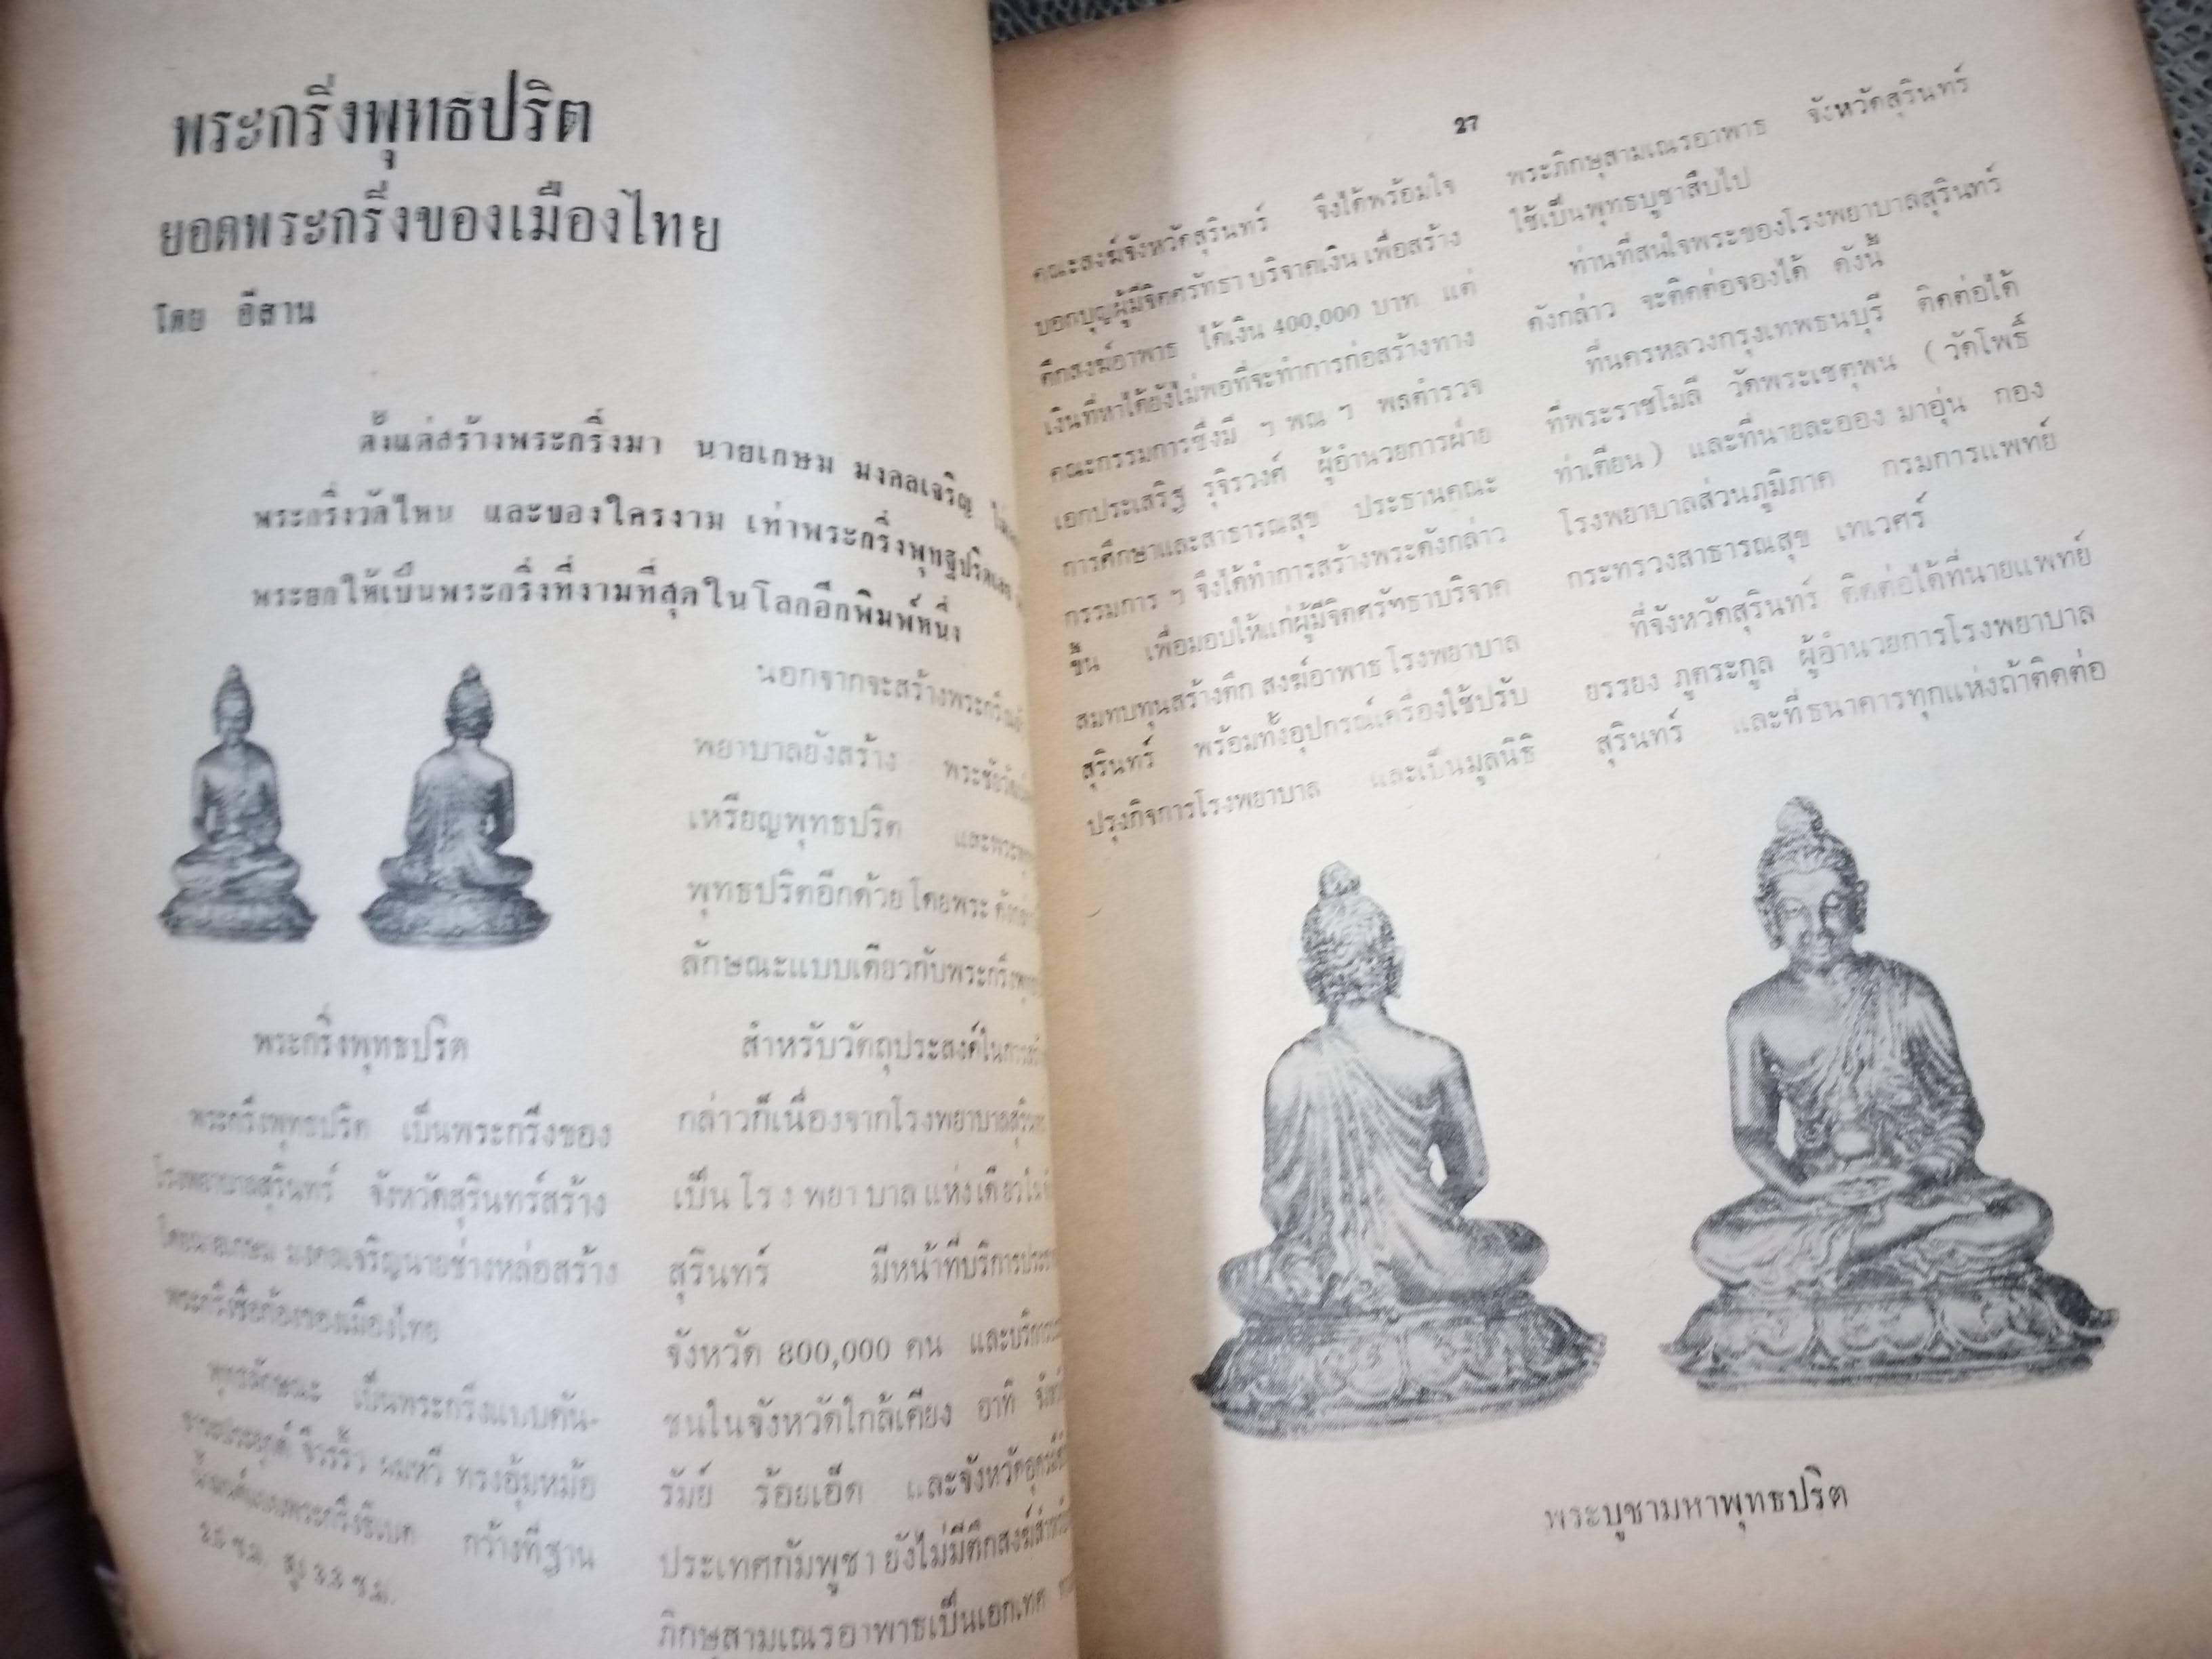 พระกริ่งพุทธปริต
ยอดพระกริ่งของเมืองไทย
โดย อีสาน
ตั้งแต่สร้างพระกริ่งมา นายเกษม มงคลเจริญ
พระกริ่งวัดไหน และของใครงาม เท่าพระกริ่งพุทฐปริตเลย
พระยกให้เป็นพระกริ่งที่งามที่สุดในโลกอีกพิมพ์หนึ่ง
พระกริ่งพุทธปริต
พระกริ่งพุทธปริต เป็นพระกริ่งของ
โรงพยาบาลสุรินทร์ จังหวัดสุรินทร์สร้าง
โดยนายเกษม มงคลเจริญนายช่างหล่อสร้าง
พระกริ่งชื่อก้องของเมืองไทย
พุทธลักษณะ เป็นพระกริ่งแบบคัน-
จีวรริ้ว ทรงอุ้มหม้อ
กว้างที่ฐาน
ซ.ม. สูง 3.3 ซ.ม.
นอกจากจะสร้างพระกริ่งแล้ว
พยาบาลยังสร้าง
เหรียญพุทธปริต
พุทธปริตอีกด้วย โดยพระ
ลักษณะแบบเดียวกับพระกริ่ง
สำหรับวัตถุประสงค์ในการ
กล่าวก็เนื่องจากโรงพยาบาลสุรินทร์
เป็น โร ง พยา บาล แห่ง เดียว ใน
สุรินทร์ มีหน้าที่บริการ
จังหวัด 800,000 คน และบริการ
ชนในจังหวัดใกล้เคียง อาทิ
รัมย์ ร้อยเอ็ด และจังหวัด
ประเทศกัมพูชา ยังไม่มีตึกสงฆ์สำหรับ
ภิกษุสามเณรอาพาธเป็นเอกเทศ
27
คณะสงฆ์จังหวัดสุรินทร์ จึงได้พร้อมใจ
บอกบุญผู้มีจิตศรัทธา บริจาคเงิน เพื่อสร้าง
ตึกสงฆ์อาพาธ ได้เงิน 400,000 บาท แต่
เงินที่หาได้ยังไม่พอที่จะทำการก่อสร้างทาง
คณะกรรมการซึ่งมี ฯ พณ ฯ พลตำรวจ
เอกประเสริฐ รุจิรวงศ์ ผู้อำนวยการฝ่าย
การศึกษาและสาธารณสุข ประธานคณะ
กรรมการ ฯ จึงได้ทำการสร้างพระดังกล่าว
ขึ้น เพื่อมอบให้แก่ผู้มีจิตศรัทธาบริจาค
สมทบทุนสร้างตึก สงฆ์อาพาธ โรงพยาบาล
สุรินทร์ พร้อมทั้งอุปกรณ์เครื่องใช้ปรับ
ปรุงกิจการโรงพยาบาล และเป็นมูลนิธิ
พระภิกษุสามเณรอาพาธ จังหวัดสุรินทร์
ใช้เป็นพุทธบูชาสืบไป
ท่านที่สนใจพระของโรงพยาบาลสุรินทร์
ดังกล่าว จะติดต่อจองได้ ดังนี้
ที่นครหลวงกรุงเทพธนบุรี ติดต่อได้
ที่พระราชโมลี วัดพระเชตุพน ( วัดโพธิ์
ท่าเตียน ) และที่นายละออง มาอุ่น กอง
โรงพยาบาลส่วนภูมิภาค กรมการแพทย์
กระทรวงสาธารณสุข เทเวศร์
ที่จังหวัดสุรินทร์ ติดต่อได้ที่นายแพทย์
ยรรยง ภูตระกูล ผู้อำนวยการโรงพยาบาล
สุรินทร์ และที่ธนาคารทุกแห่งถ้าติดต่อ
พระบูชามหาพุทธปริต